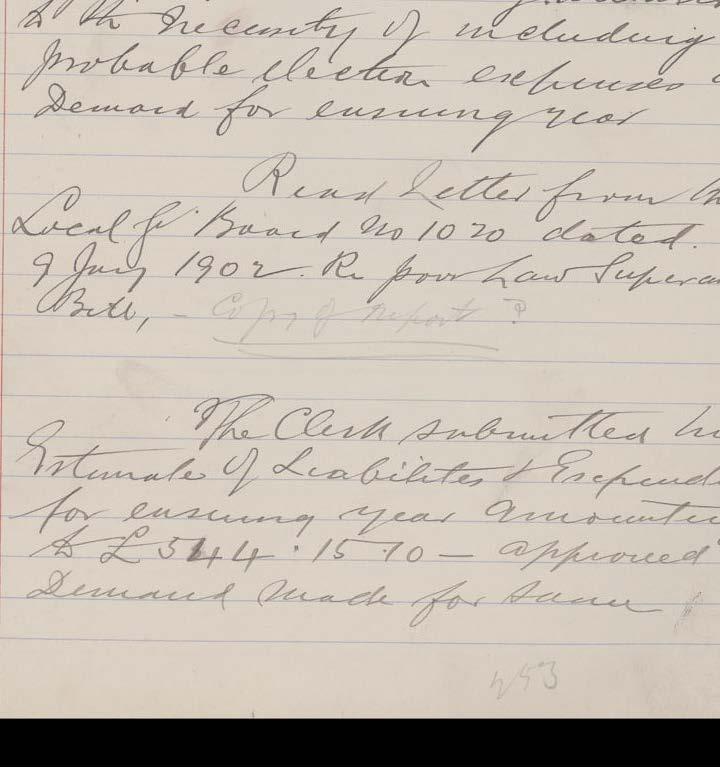 to the necessity of including
probable election expenses
Demand for ensuing year
Read Letter from
Local Gt Board No 1020 dated.
9 Jany 1902. Re poor Law Supera
Bill, - Copy of report ?
The Clerk submitted
Estimate of Liabilities & Expendi
for ensuing year amountin
to £ 544 . 15 . 10 — approved
Demand made for same
253